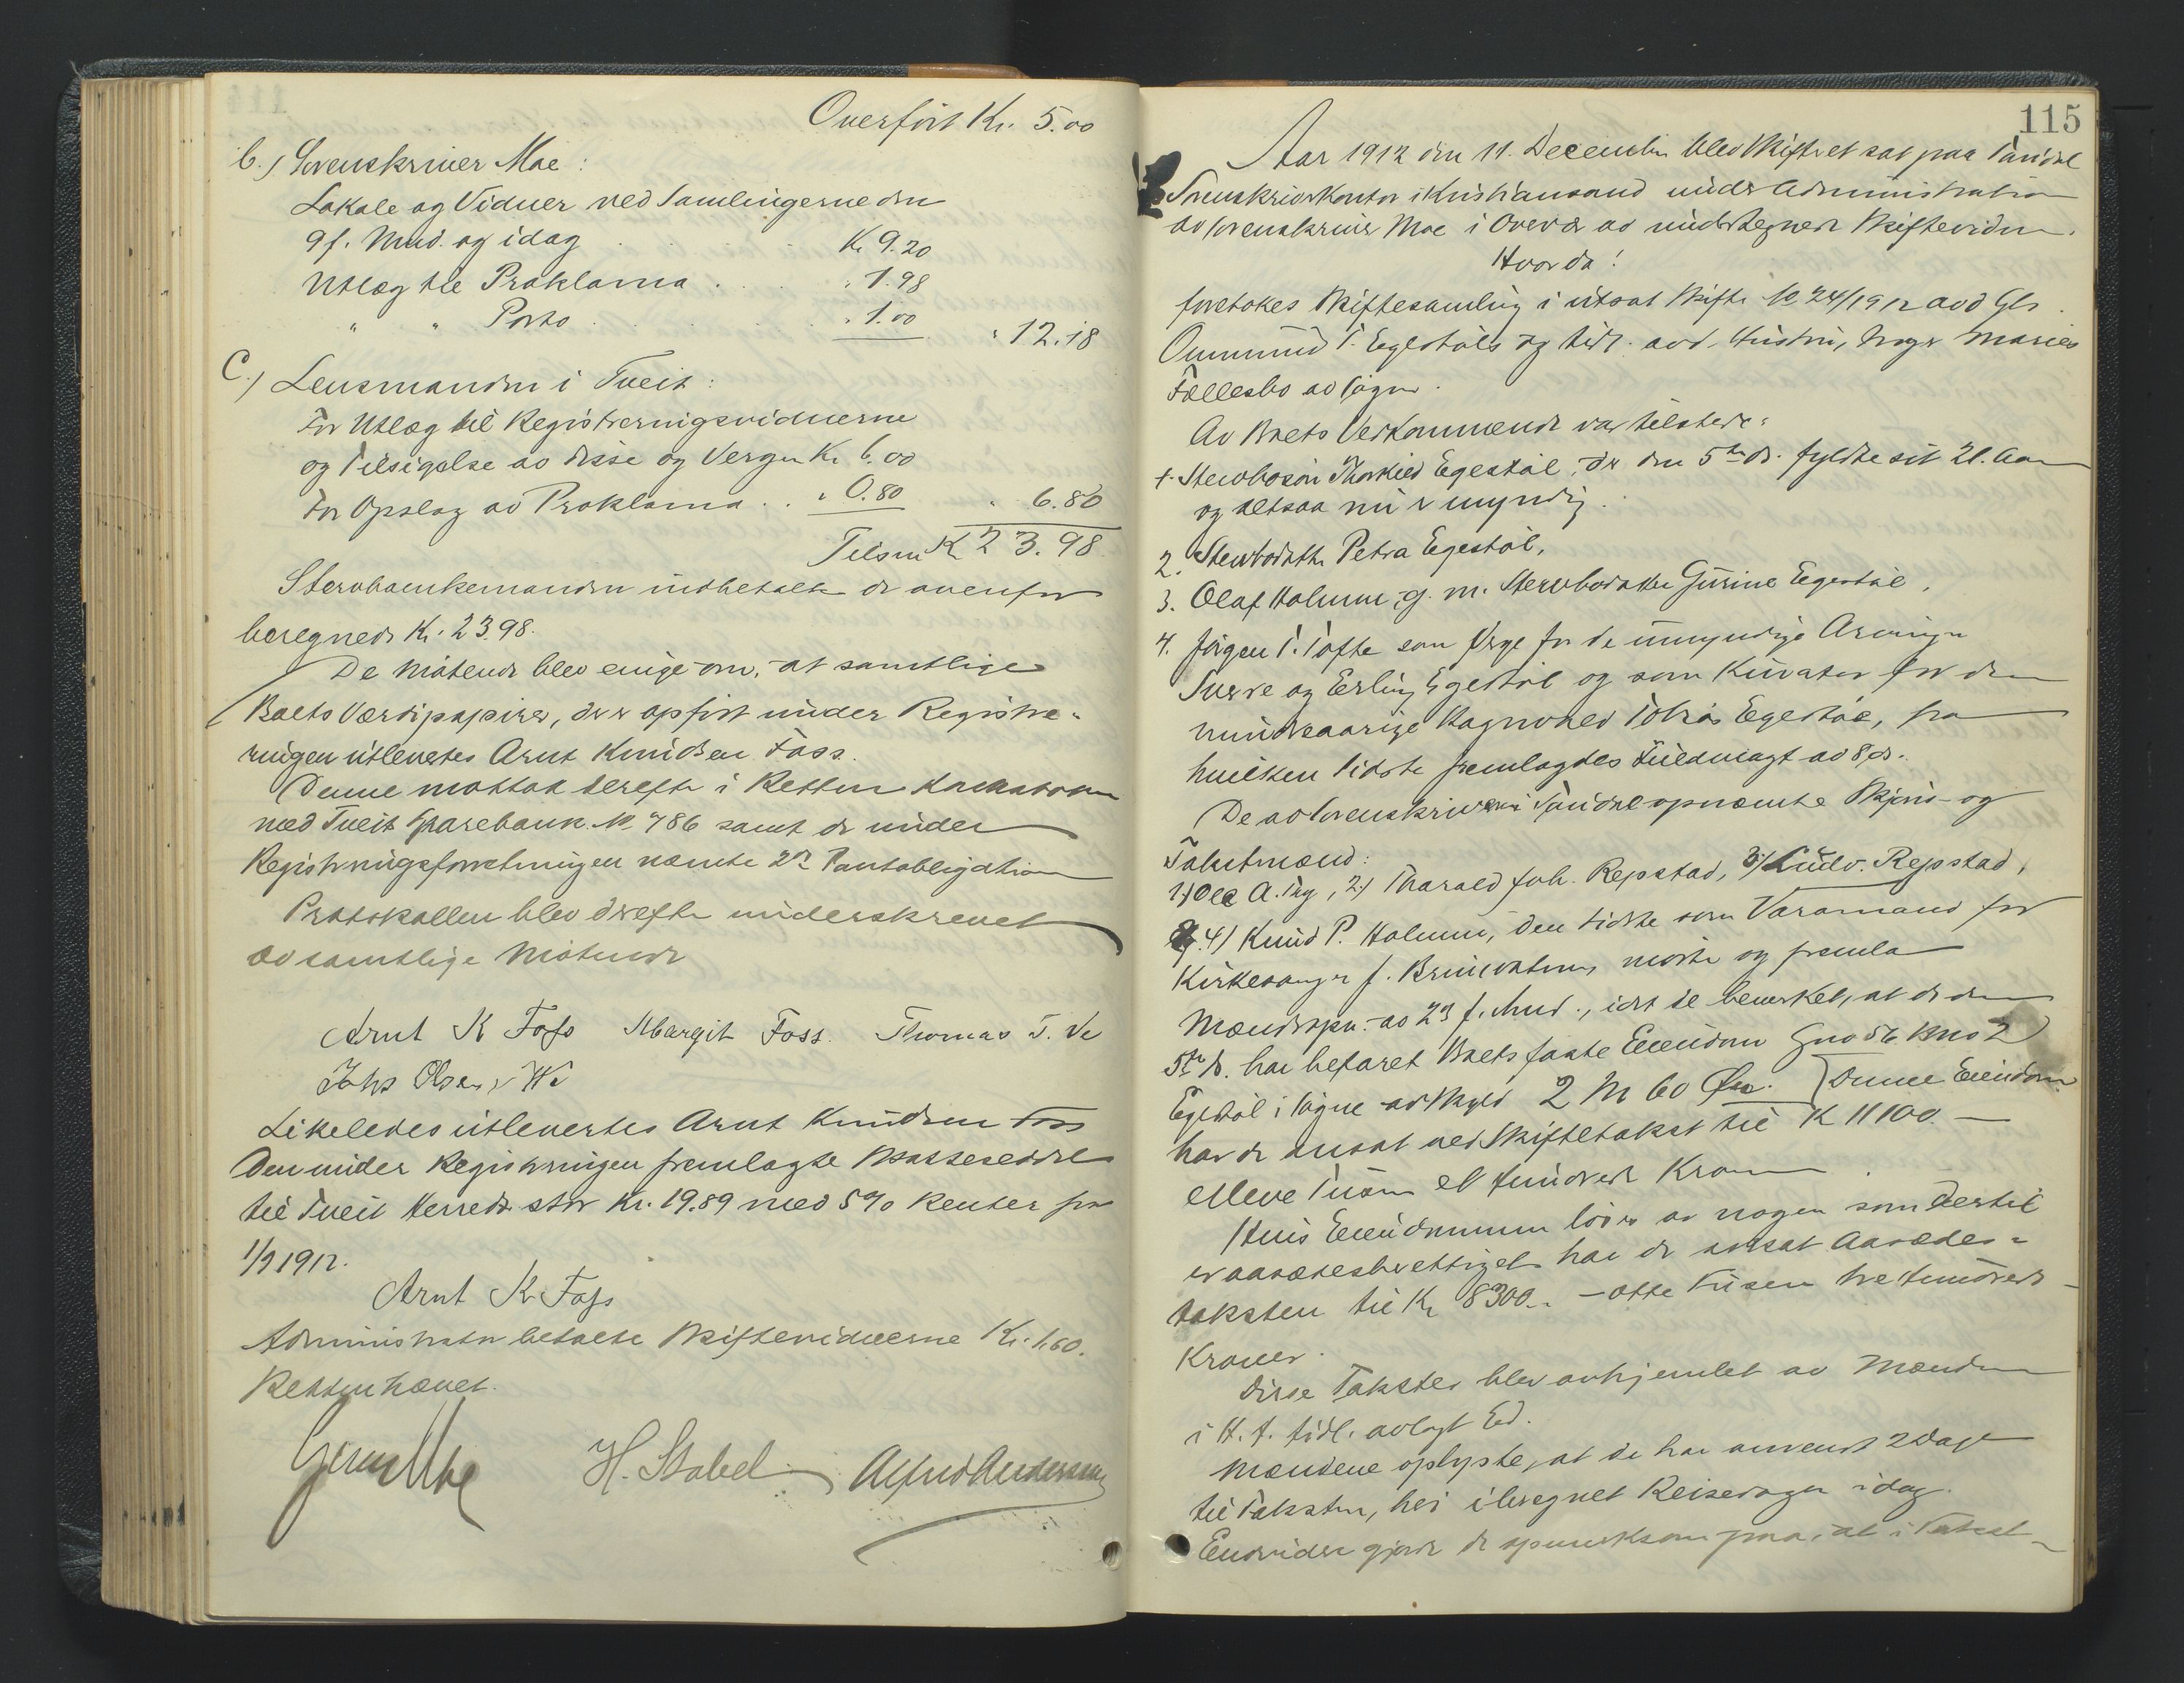 Overført Kr. 5.00
b.) Sorenskriver Moe:
Lokale og Vidner ved Samlingerne den
9 f. Mnd. og idag . . . K. 9.20
Utlæg til Proklama . . . " 1.98
" " Porto . . . " 1.00 " 12.18
C.) Lensmanden i Tveit:
For Utlæg til Registreringsvidnerne
og Tilsigelse av disse og Vergen Kr. 6.00
For Opslag av Proklama . . " 0.80 " 6.80
Tilsm K. 23.98
Stervboenkemanden indbetalte de ovenfor
beregnede Kr. 23.98.
De Møtende blev enige om, at samtlige
Boets Værdipapirer, der er opført under Registre-
ringen utlevertes Arnt Knudsen Foss.
Denne mottok derefter i Retten Kontrabog
med Tveit Sparebank No 786 samt de under
Registreringsforretningen nævnte 2de Pantobligation
Protokollen blev derefter underskrevet
av samtlige Møtende
Arnt K Foss Margit Foss. Thomas T. Ve
Johs Olsen Ve
Likeledes utlevertes Arnt Knudsen Foss
Den under Registreringen fremlagte
til Tveit Herred stor Kr. 19.89 med 5% Renter fra
1/9 1912.
Arnt K Foss
Administrator betalte Skiftevidnerne Kr. 1.60.
Retten hævet.
H. Stabel Alfred Andersen
115
Aar 1912 den 11. December blev Skifteret sat paa Mandal
Sorenskriverkontor i Kristiansand under Administration
av sorenskriver Moe i Overvær av undertegnede Skiftevidner.
Hvorda!
foretokes Skiftesamling i utsat Skifte No 24/1912 avd Gbr.
Ommund T. Egestøls og tidl. avd. Hustru, Inger Maries
Fællesbo av Søgne.
Av Boets Vedkommende var tilstede:
1. Stervbosøn Thorkild Egestøl, der den 5te ds. fyldte sit 21. Aar
og altsaa nu er myndig.
2. Stervbodatter Petra Egestøl,
3. Olaf Holmen, g. m. Stervbodatter Gurine Egestøl,
4. Jørgen T. Tofte som Verge for de umyndige Arvinger
Sverre og Erling Egestøl og som Kurator for den
mindreaarige Ragnvald Tobias Egestøl, fra
hvilken sidste fremlagdes Fuldmagt av 8 ds.
De av Sorenskriveren i Mandal opnævnte Skjøns- og
Takstmænd:
1) Ole A. Try, 2) Tharald Joh. Repstad, 3) Ludv. Repstad,
og 4) Knud P. Holmen, den sidste som Varamand for
Kirkesanger J. Brunvatne, møtte og fremla
Mændsopn. av 23 f. Mnd., idet de bemerket, at de den
5te ds. har befaret Boets faste Eiendom Gno 56 Bno 2
Egestøl i Søgne av Skyld 2 M 60 Øre. Denne Eiendom
har de ansat ved Skiftetakst til K 11100.—
elleve Tusen et hundrede Kroner.
Hvis Eiendommen løses av nogen som dertil
er aasædesberettiget har de ansat Aasædes-
taksten til Kr. 8300.- — otte tusen tre hundrede —
Kroner.
Disse Takster blev avhjemlet av Mændene
i H. t. tidl. avlagt Ed.
Mændene oplyste, at de har anvendt 2 Dage
til Taksten, heri iberegnet Reisedagen idag.
Endvidere gjorde de opmerksom paa, at i